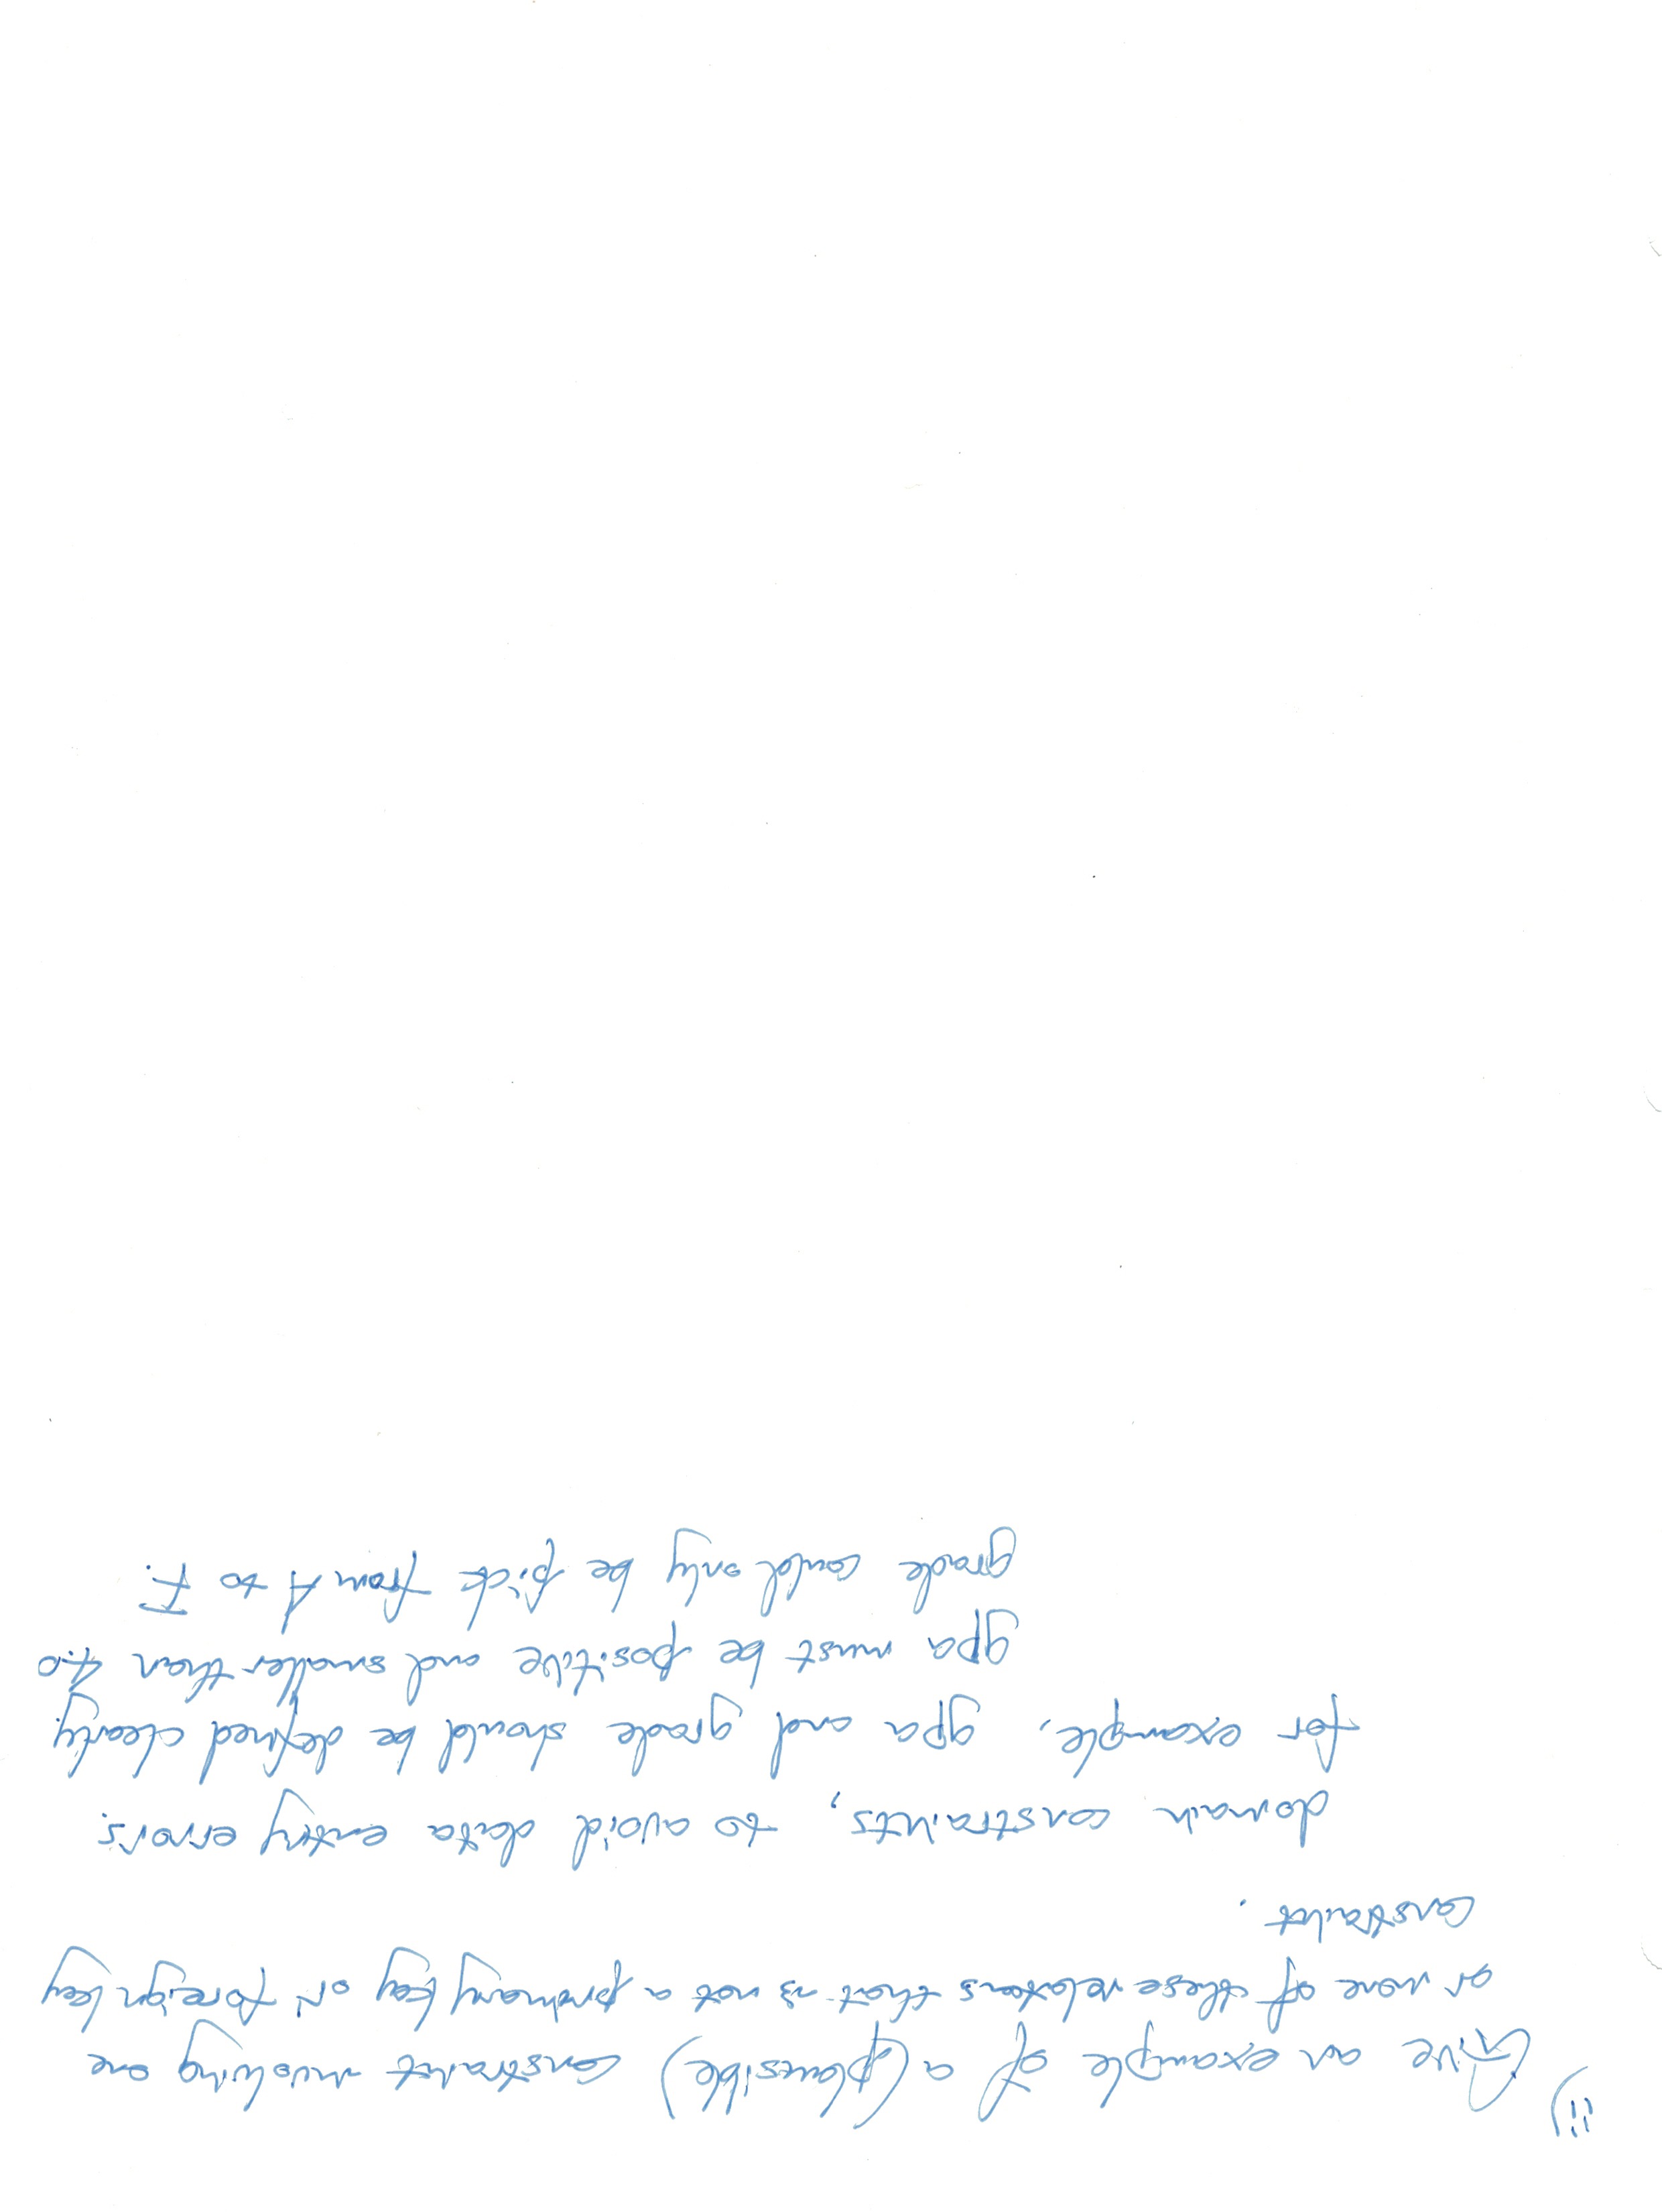 ii) Give an example of a (plausible) constraint involving one
or more of these relations that is not a primary key or foreign key
constraint.
domain constraints, to avoid data entry errors.
for example, gpa and grade should be defined clearly
gpa must be positive and smaller than 4.0
grade could only be pick from A to F.